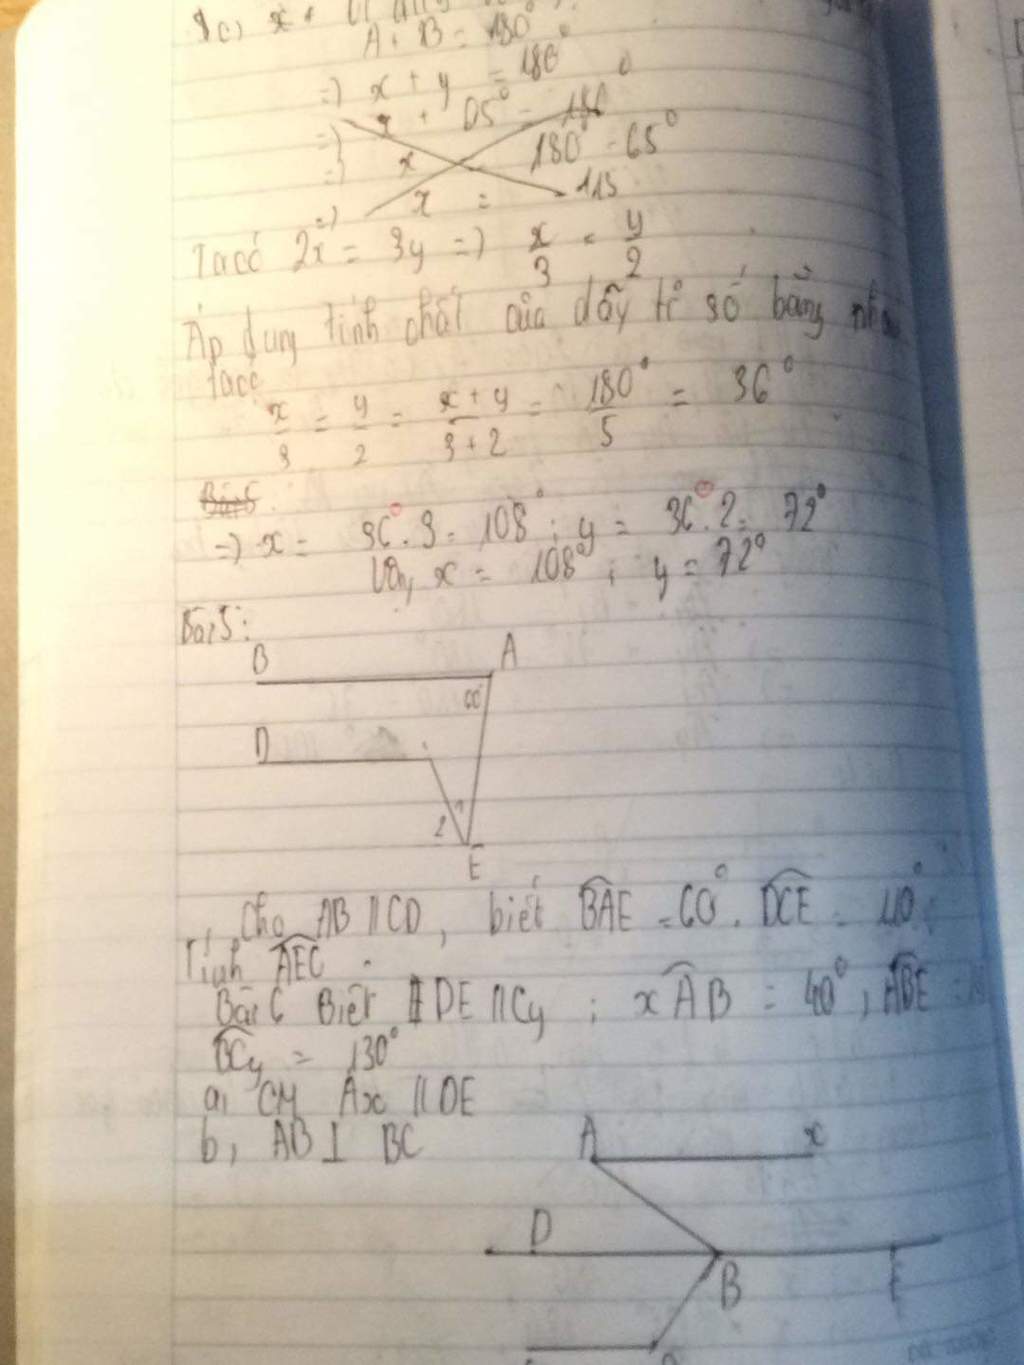 A + B = 180°
=) x + y = 180°
=) x + 65° = 180
=) x 180° - 65°
=) x = 115
Ta có 2x = 3y =) x/3 = y/2
Áp dụng tính chất của dãy tỉ số bằng nhau
ta có
x/3 = y/2 = x + y/3 + 2 = 180°/5 = 36°
Bài 5:
=) x = 36°. 3 = 108°; y = 36°. 2 = 72°
Vậy x = 108°; y = 72°
Bài 5:
B A
60°
D
2 1
E
Cho AB // CD, biết BAE = 60°. DCE = 110°.
Tính AEC.
Bài 6 Biết DE // Cy ; xAB = 40°, ABE =
BCy = 130°
a, CM Ax // DE
b, AB ⊥ BC
A x
D
B E